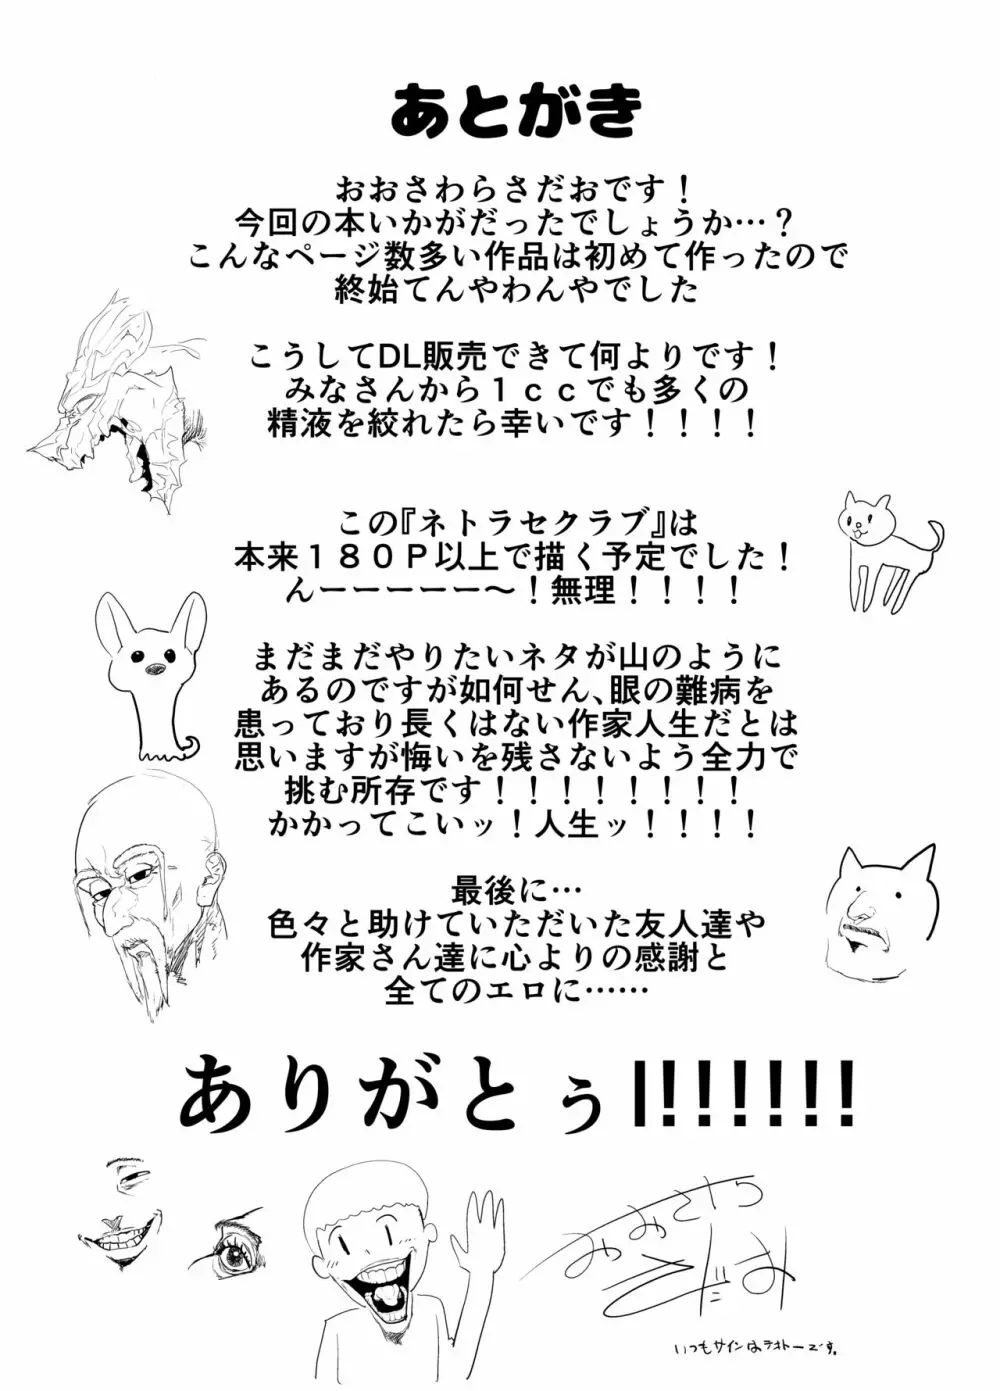 あとがき
おおさわらさだおです！
今回の本いかがだったでしょうか…？
こんなページ数多い作品は初めて作ったので
終始てんやわんやでした
こうしてDL販売できて何よりです！
みなさんから１ｃｃでも多くの
精液を絞れたら幸いです！！！！
この『ネトラセクラブ』は
本来１８０Ｐ以上で描く予定でした！
んーーーーー～！無理！！！！
まだまだやりたいネタが山のように
あるのですが如何せん、眼の難病を
患っており長くはない作家人生だとは
思いますが悔いを残さないよう全力で
挑む所存です！！！！！！！！
かかってこいッ！人生ッ！！！！
最後に…
色々と助けていただいた友人達や
作家さん達に心よりの感謝と
全てのエロに……
ありがとぅ|!!!!!!
おおさわら
さだお
いつもサインはテキトーです。